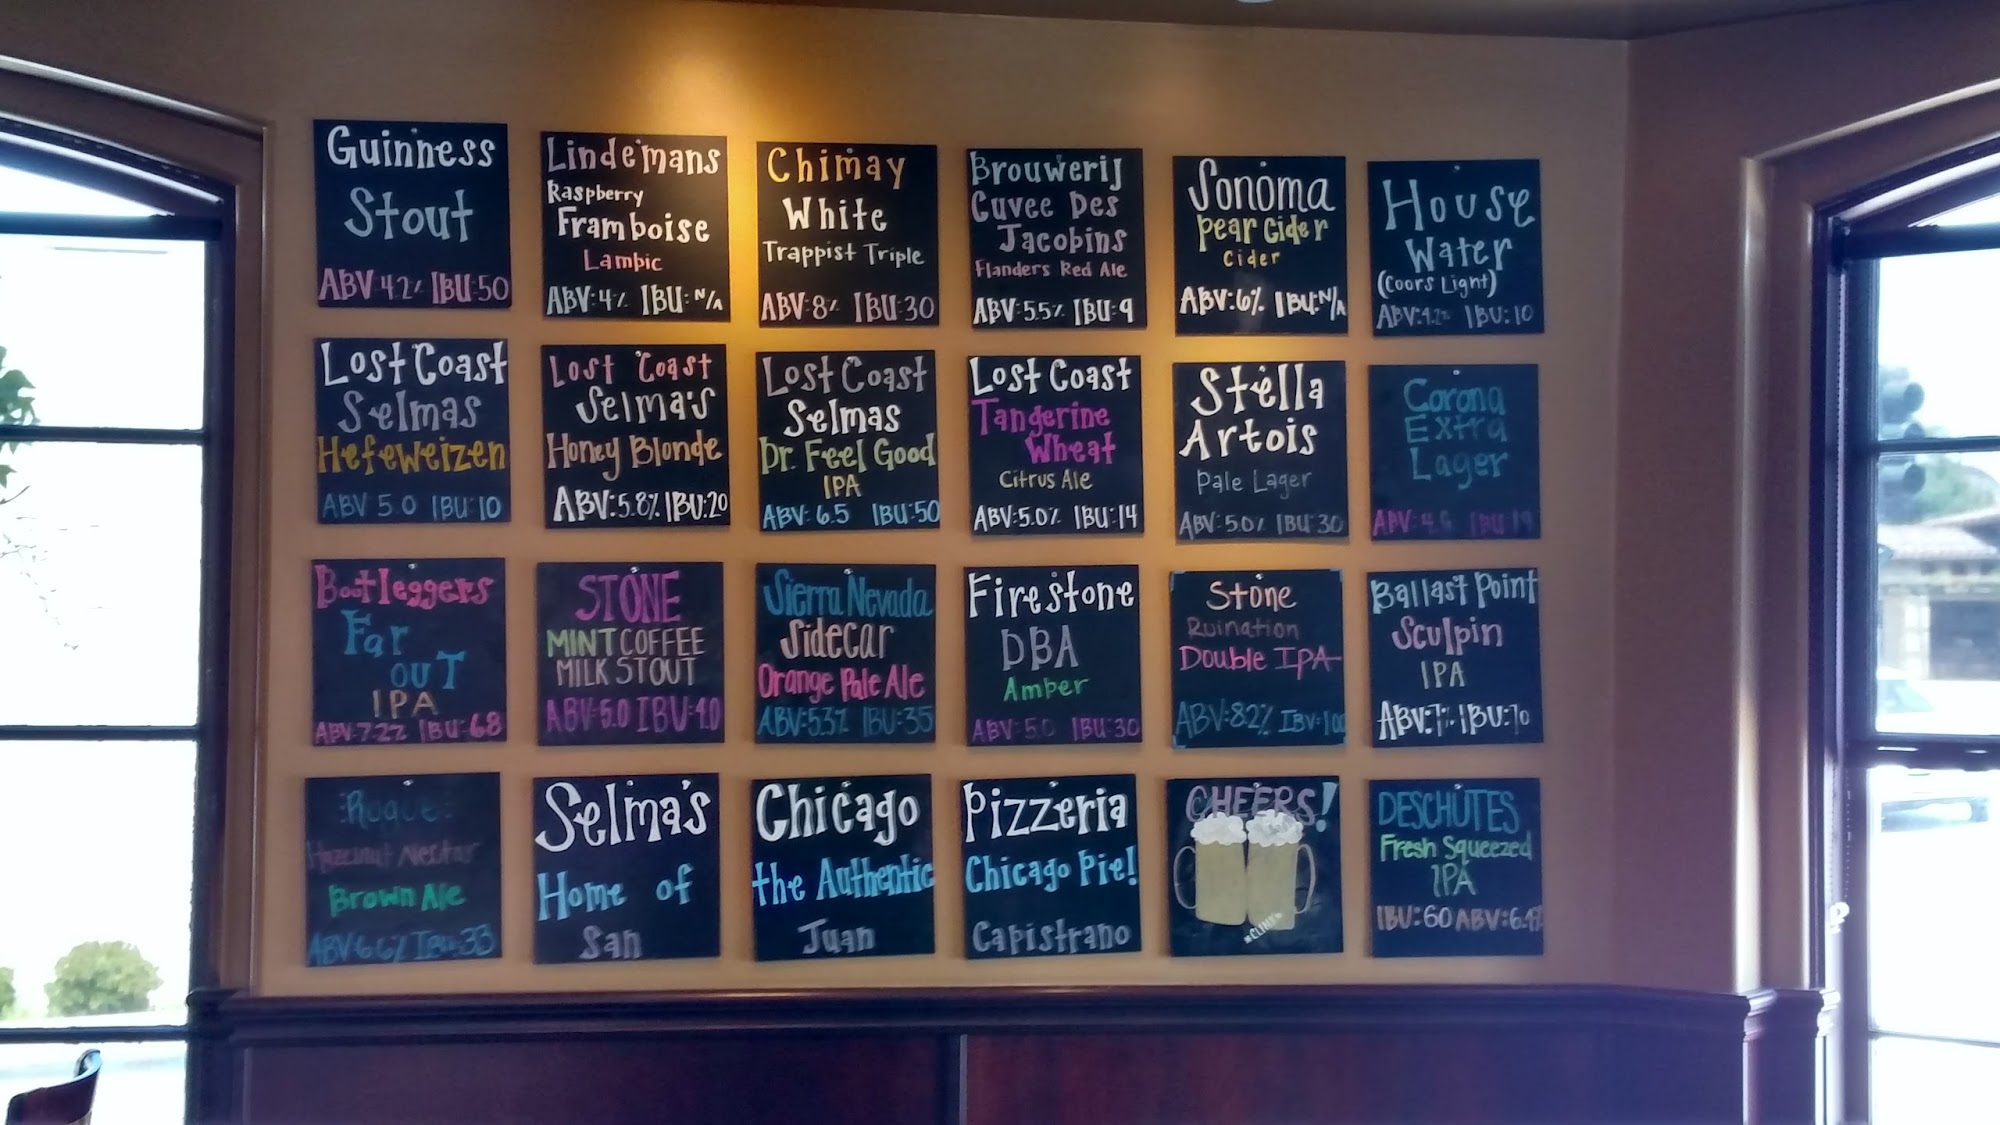 Guinness
Stout
ABV 4.2% IBU:50
Lindemans
Raspberry
Framboise
Lambic
ABV:4% IBU:N/A
Chimay
White
Trappist Triple
ABV:8% IBU:30
Brouwerij
Cuvee Des
Jacobins
Flanders Red Ale
ABV:5.5% IBU:9
Sonoma
Pear Cider
Cider
ABV:6% IBU:N/A
House
Water
(Coors Light)
ABV:4.2% IBU:10
Lost Coast
Selmas
Hefeweizen
ABV 5.0 IBU:10
Lost Coast
Selma's
Honey Blonde
ABV:5.8% IBU:20
Lost Coast
Selmas
Dr. Feel Good
IPA
ABV: 6.5 IBU:50
Lost Coast
Tangerine
Wheat
Citrus Ale
ABV:5.0% IBU:14
Stella
Artois
Pale Lager
ABV:5.0% IBU:30
Corona
Extra
Lager
ABV: IBU:19
Bootleggers
Far
ouT
IPA
ABV:7.2% IBU:68
STONE
MINT COFFEE
MILK STOUT
ABV:5.0 IBU:40
Sierra Nevada
Sidecar
Orange Pale Ale
ABV:5.3% IBU:35
Firestone
DBA
Amber
ABV:5.0 IBU:30
Stone
Ruination
Double IPA
ABV:8.2% IBU:100
Ballast Point
Sculpin
IPA
ABV:7% IBU:70
Rogue
Hazelnut Nectar
Brown Ale
ABV:6.6% IBU:33
Selma's
Home of
San
Chicago
the Authentic
Juan
Pizzeria
Chicago Pie!
Capistrano
CHEERS!
*CLINK*
DESCHUTES
Fresh Squeezed
IPA
IBU:60 ABV:6.4%